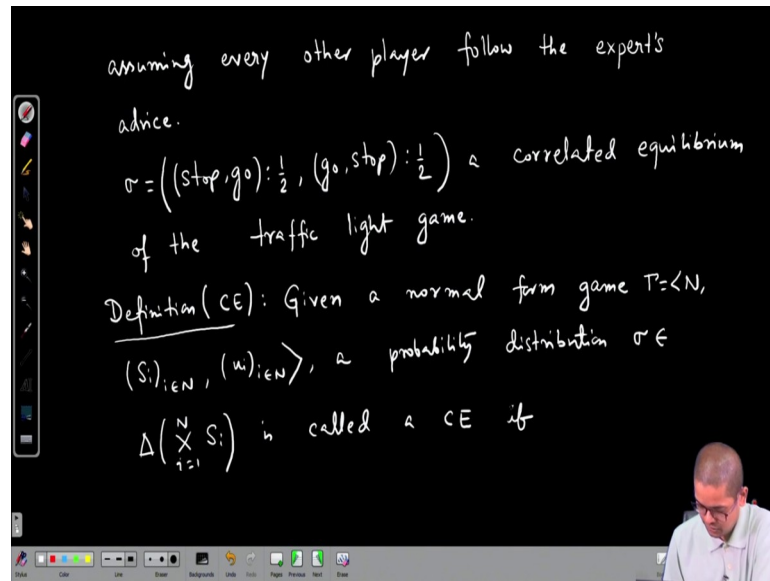 assuming every other player follow the expert's
advice.
σ = ((stop,go):½, (go,stop):½) a correlated equilibrium
of the traffic light game.
Definition (CE): Given a normal form game Γ=<N,
(Si)i∈N, (ui)i∈N>, a probability distribution σ ∈
Δ(×ᴺᵢ₌₁ Si) is called a CE if
Stylus Color Line Eraser Backgrounds Undo Redo Pages Previous Next Erase